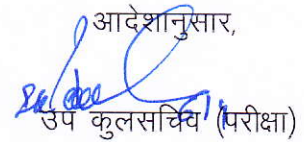 आदेशानुसार,
उप कुलसचिव (परीक्षा)